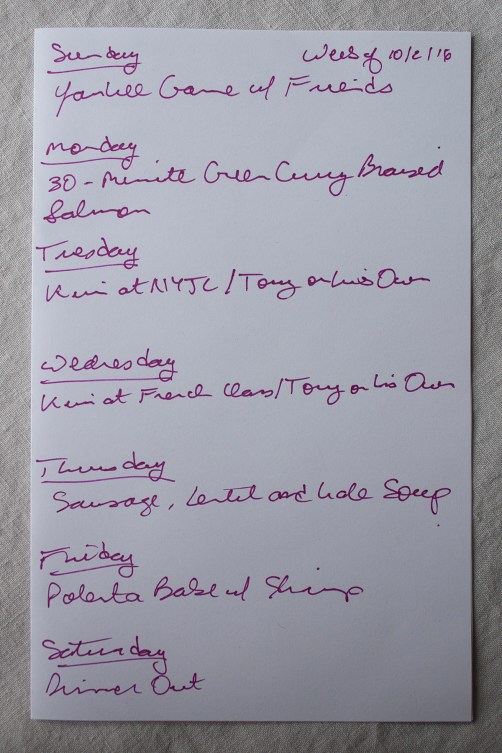 Sunday Week of 10/2/16
Yankee Game w/ Friends
Monday
30-Minute Green Curry Braised
Salmon
Tuesday
Kim at NYJL/Tony on his Own
Wednesday
Kim at French Class/Tony on his Own
Thursday
Sausage, Lentil and Kale Soup
Friday
Polenta Bake w/ Shrimp
Saturday
Dinner Out